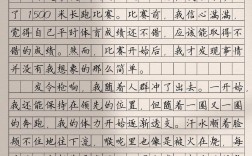 了1500米长跑比赛。比赛前，我信心满满，
觉得自己平时体育成绩还不错，应该能取得不
错的成绩。然而，比赛开始后，我才发现事情
并没有我想象的那么简单。
发令枪响，我随着人群冲了出去。一开始，
我还能保持在领先的位置，但随着一圈又一圈
的奔跑，我的体力开始逐渐透支。汗水顺着脸
颊不住地往下流，喉咙里也像是被火在